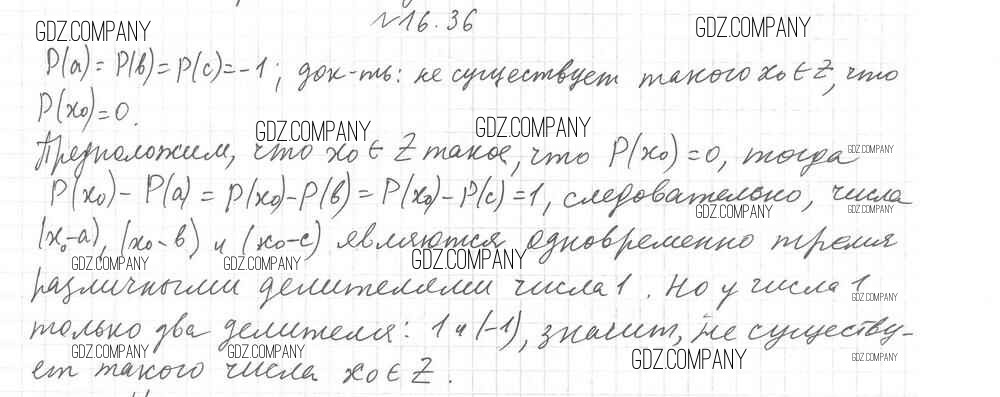 №16.36
GDZ.COMPANY GDZ.COMPANY
P(a) = P(в) = P(c) = -1; док-ть: не существует такого x₀ ∈ Z, что
P(x₀) = 0.
GDZ.COMPANY GDZ.COMPANY
Предположим, что x₀ ∈ Z такое, что P(x₀) = 0, тогда
GDZ.COMPANY
P(x₀) - P(a) = P(x₀) - P(в) = P(x₀) - P(c) = 1, следовательно, числа
GDZ.COMPANY GDZ.COMPANY
(x₀-a), (x₀-в) и (x₀-c) являются одновременно тремя
GDZ.COMPANY GDZ.COMPANY GDZ.COMPANY
различными делителями числа 1. Но у числа 1
GDZ.COMPANY
только два делителя: 1 и (-1), значит, не существу-
GDZ.COMPANY GDZ.COMPANY GDZ.COMPANY GDZ.COMPANY
ет такого числа x₀ ∈ Z.